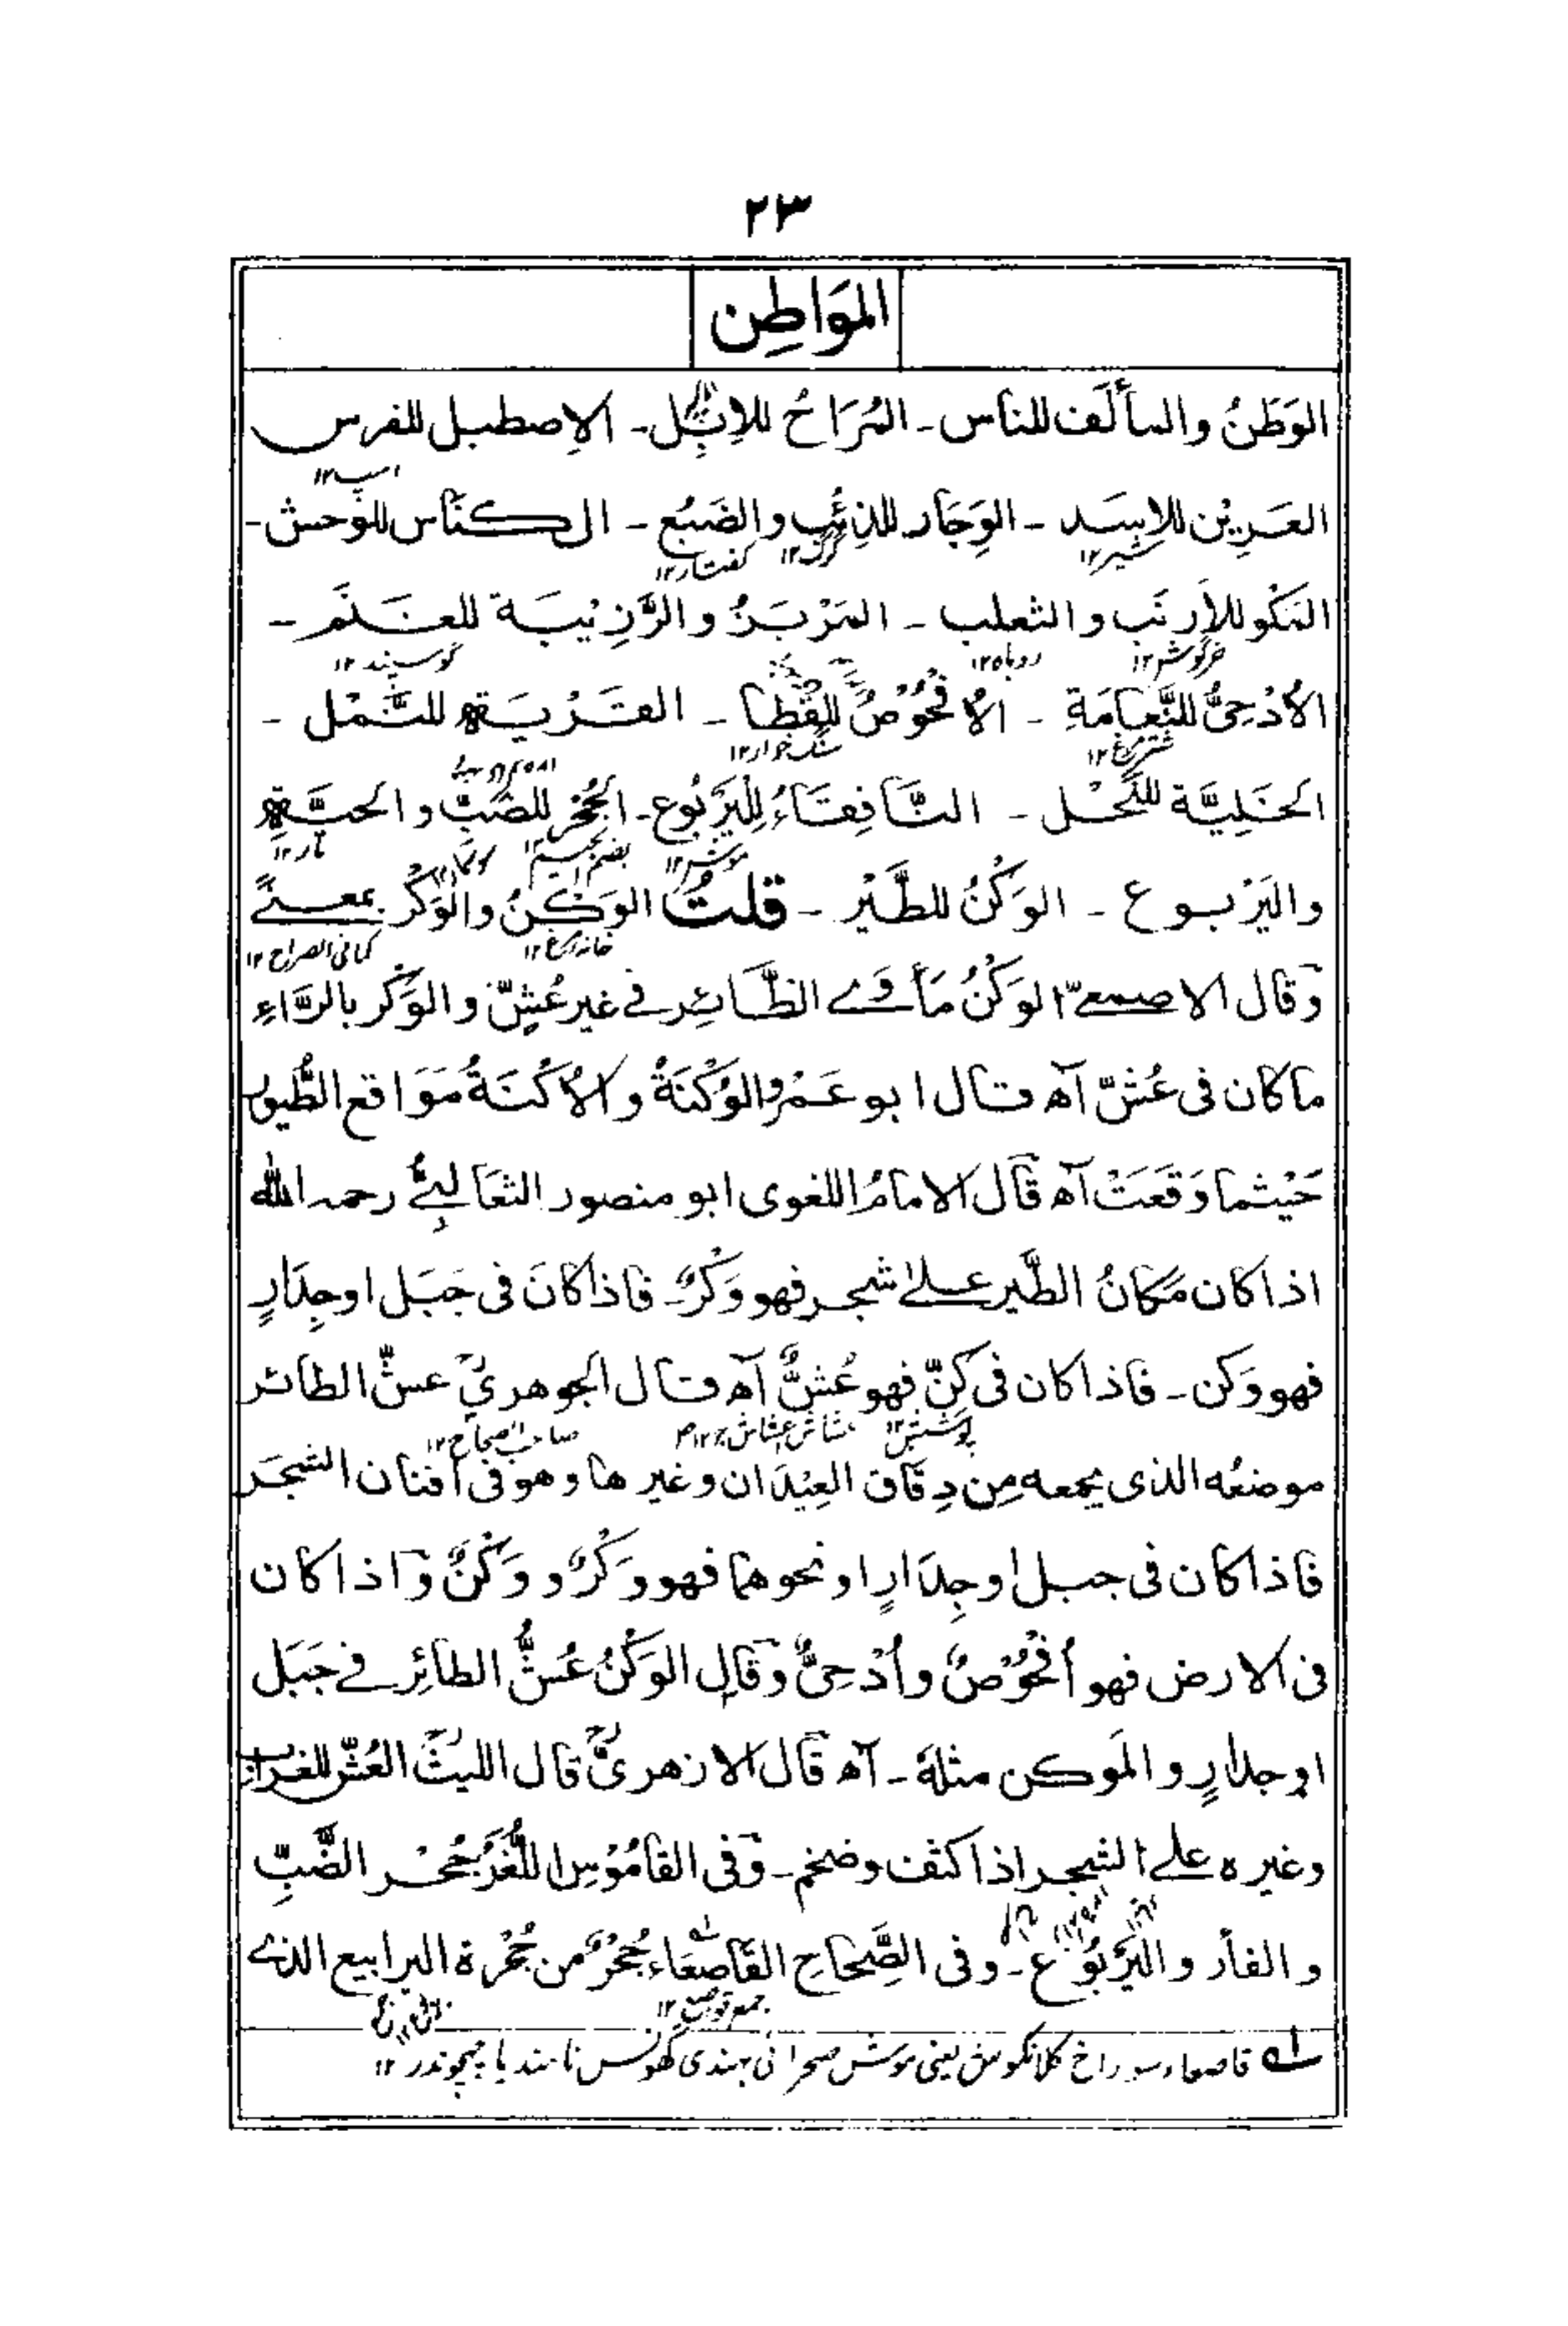 ٢٣
المَوَاطِن
الوَطَنُ والمألَف للناس ـ المُرَاحُ للاِبِل ـ الاِصطبل للفرس
العَرِيْن للاسَد ـ الوِجَار للذِئب والضَبُع ـ الكناس للوَحش ـ
اسپ١٢
شیر١٢ گرگ١٢ کفتار١٢
المَكْو للارنَب والثعلب ـ المَرْبَضُ والزَّرِيْبَة للغَنَم ـ
خرگوش١٢ روباه١٢ گوسپند١٢
الأُدْحِىُّ للنَّعَامَةِ ـ الأُفْحُوْصُ للقَطا ـ القَرْيَة للنَّمْل ـ
شترمرغ١٢ سنگ خوار١٢
الخَلِيَّة للنَّحْل ـ النَّافِقَاءُ لليَرْبُوع ـ الجُحْر للضَبِّ والحيَّةِ
موش١٢ بضم الجيم١٢ مار١٢
واليَرْبوع ـ الوَكْنُ للطَّيْر ـ قلتُ الوَكْنُ والوَكْر بمعنىً
خانه مرغ١٢ كما فى الصراح١٢
وقال الاصمعىّ الوَكْنُ مَأوَى الطَّائِر فى غير عُشٍّ والوَكْر بالرَّاءِ
ماكان فى عُشّ آه قال ابو عَمْرو الوُكْنَةُ والأُكْنَةُ مَوَاقع الطُّيور
حَيْثما وَقَعَتْ آه قال الامامُ اللغوى ابو منصور الثعَالبىُّ رحمه الله
اذا كان مَكانُ الطَّير على شجر فهو وَكْرٌ ـ فاذا كانَ فى جَبَل او جِدَارٍ
فهو وَكن ـ فاذا كان فى كِنّ فهو عُشٌّ آه قال الجوهرىّ عشُّ الطائر
پوشش١٢ صاحب صحاح١٢
موضعُه الذى يجمعه مِن دِقَاق العِيْدَان وغيرها وهو فى افنان الشجَر
فاذا كان فى جبل او جِدَارٍ او نحوهما فهو وَكْرٌ و وَكْنٌ وَاذا كان
فى الارض فهو أُفْحُوْصٌ وأُدْحِىٌّ وقال الوَكْنُ عُشُّ الطائِر فى جَبَل
او جدارٍ والمَوكن مثلهُ ـ آه قال الازهرىُّ قال الليثُ العُشّ للغراب
وغيره على الشجر اذا كثف وضخم ـ وفى القامُوْس اللُّغَزُ جُحْر الضَّبِّ
والفأر واليَرْبُوْع ـ وفى الصِّحَاح القَاصعَاء جُحْرٌ من جُحْرة اليرابيع الذى
جمع قواصع١٢
له قاصعاء سوراخ کلانکوش یعنی موش صحرائی بهندی گھونس نامند یا چھچوندر١٢